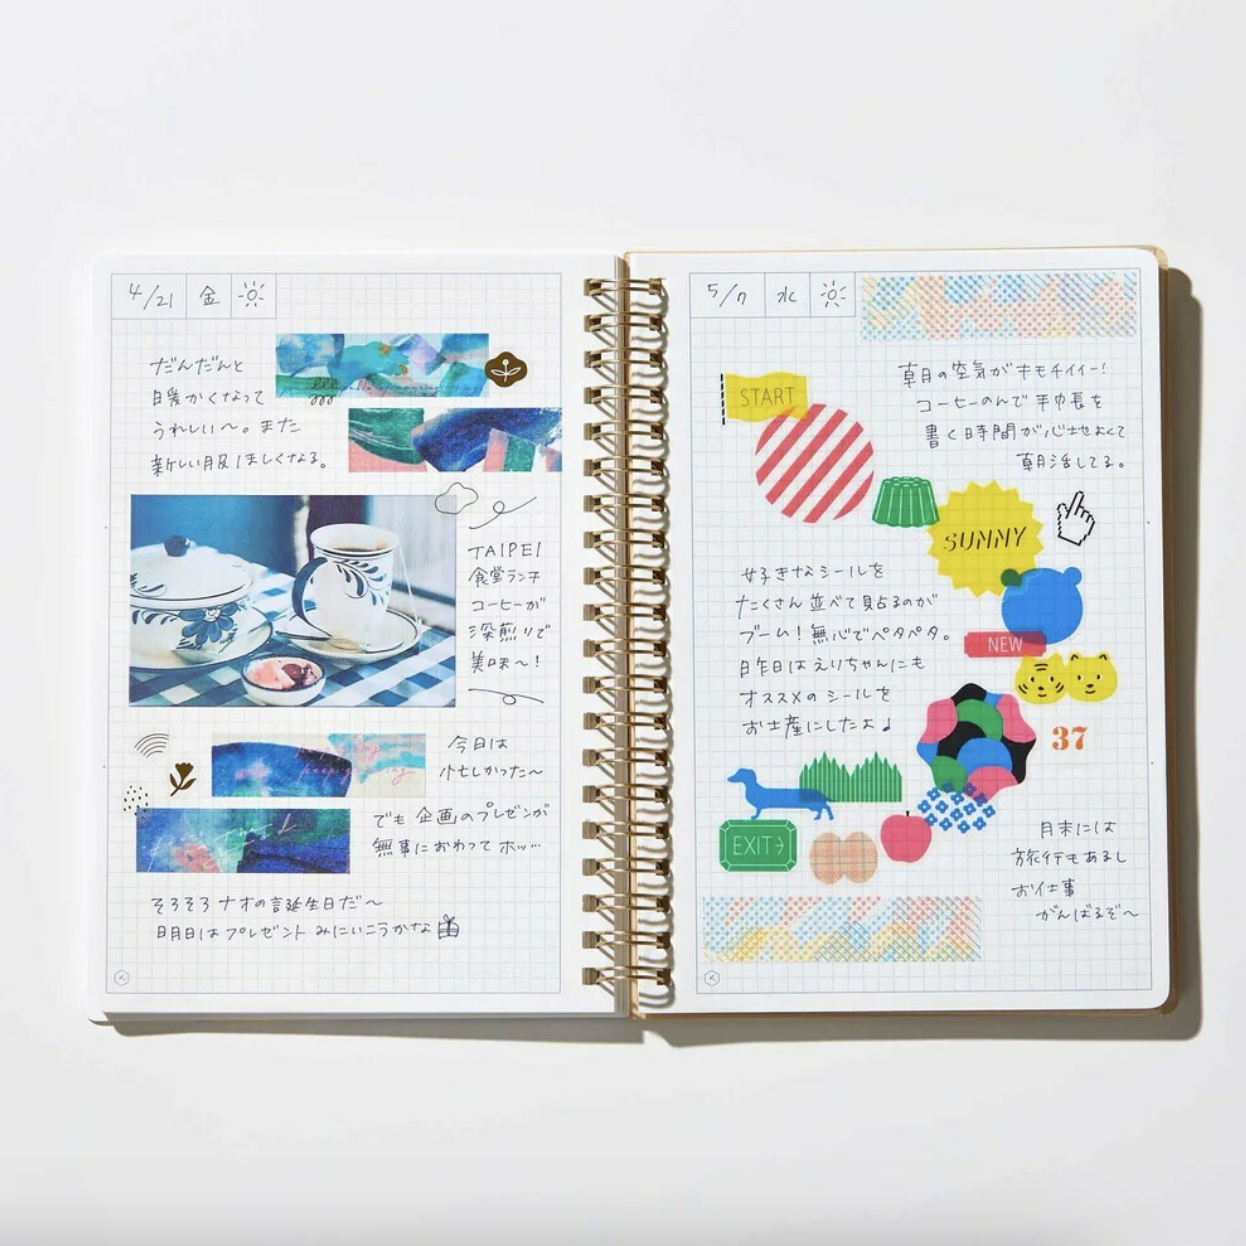 4/21 金
だんだんと
暖かくなって
うれしい〜。また
新しい服ほしくなる。
TAIPEI
食堂ランチ
コーヒーが
深煎りで
美味〜！
今日は
忙しかった〜
でも企画のプレゼンが
無事におわってホッ…
そろそろナオの誕生日だ〜
明日はプレゼントみにいこうかな
5/7 水
START
朝の空気がキモチイイー！
コーヒーのんで手帳を
書く時間が心地よくて
朝活してる。
SUNNY
好きなシールを
たくさん並べて貼るのが
ブーム！無心でペタペタ。
昨日はえりちゃんにも
オススメのシールを
お土産にしたよ♪
NEW
37
EXIT→
月末には
旅行もあるし
お仕事
がんばるぞ〜